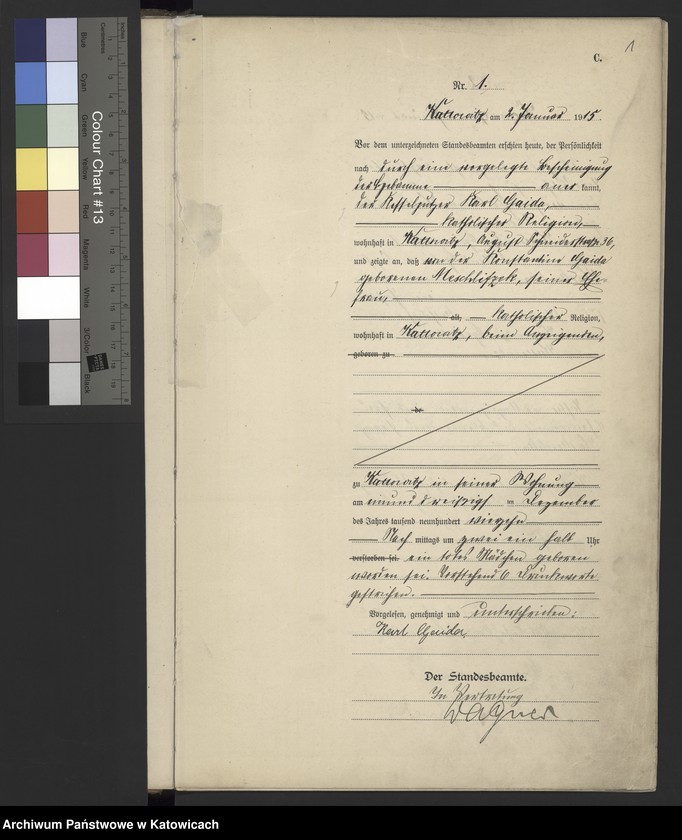 1
C.
Nr. 1.
Kattowitz am 2. Januar 1915.
Vor dem unterzeichneten Standesbeamten erschien heute, der Persönlichkeit
nach durch eine vorgelegte Bescheinigung
der Hebamme anerkannt,
der Kesselputzer Karl Gaida,
katholischer Religion,
wohnhaft in Kattowitz, August Schneiderstraße 36,
und zeigte an, daß von der Konstantine Gaida
geborenen, seiner Ehe-
frau,
alt, katholischer Religion,
wohnhaft in Kattowitz, beim Anzeigenden,
geboren zu
de
zu Kattowitz in seiner Wohnung
am einunddreißigsten Dezember
des Jahres tausend neunhundert vierzehn
Nachmittags um zwei ein halb Uhr
verstorben sei. ein totes Mädchen geboren
worden sei. Vorstehend 6 Druckworte
gestrichen.
Vorgelesen, genehmigt und unterschrieben:
Karl Gaida
Der Standesbeamte.
In Vertretung
Wagner
Colour Chart #13
Blue
Cyan
Green
Yellow
Red
Magenta
White
3/Color
Black
Centimetres
Inches
Archiwum Państwowe w Katowicach